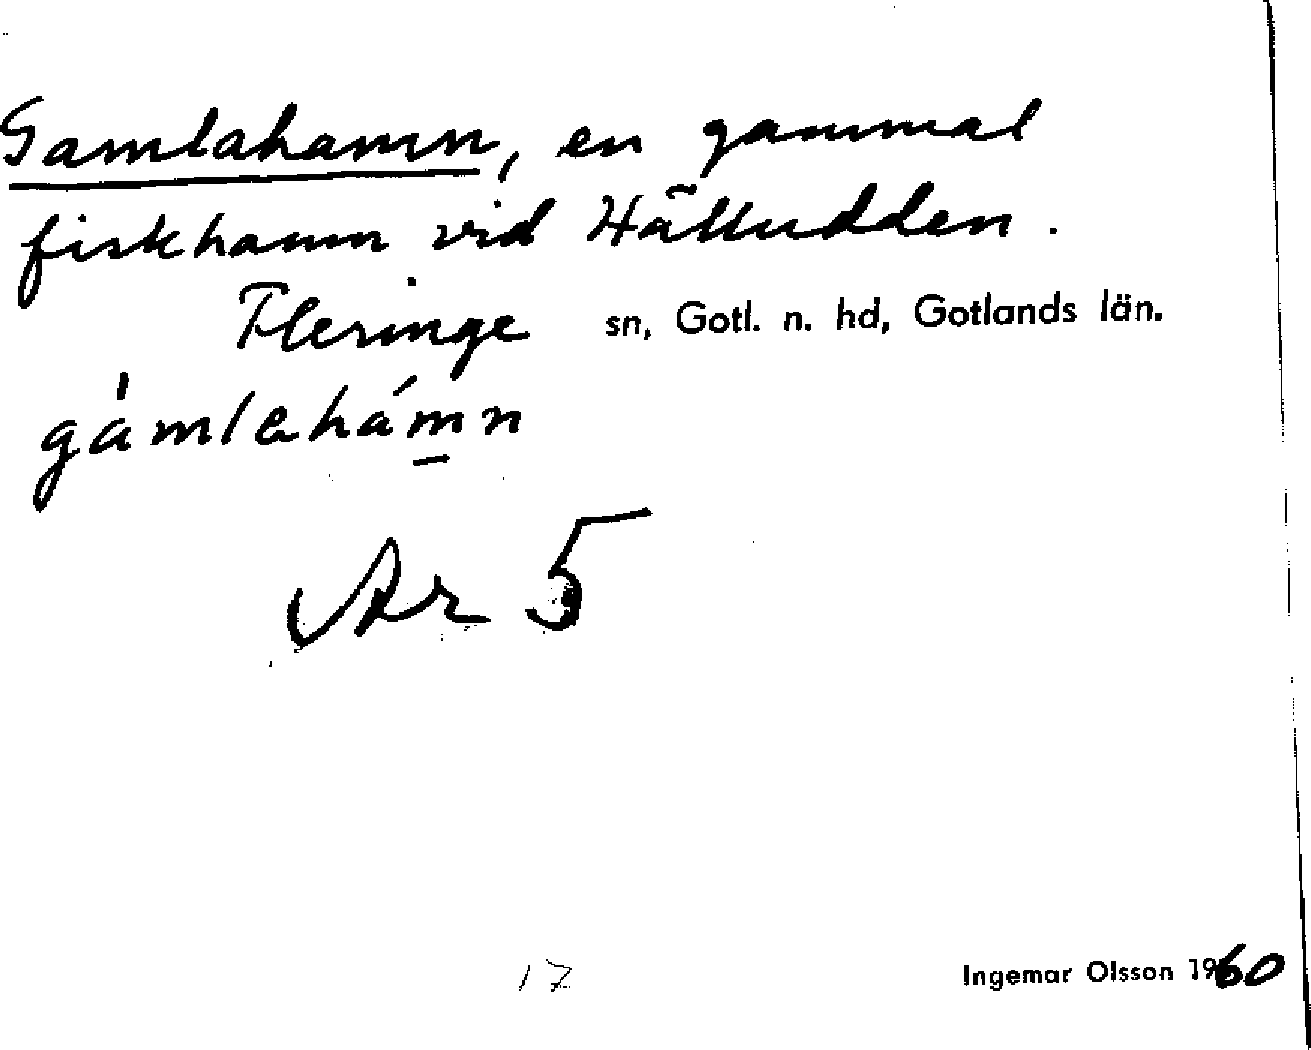 Gamlahamn, en gammal
fiskhamn vid Hälludden.
Fleringe sn, Gotl. n. hd, Gotlands län.
gámlahámn
Ar 5
17
Ingemar Olsson 1960